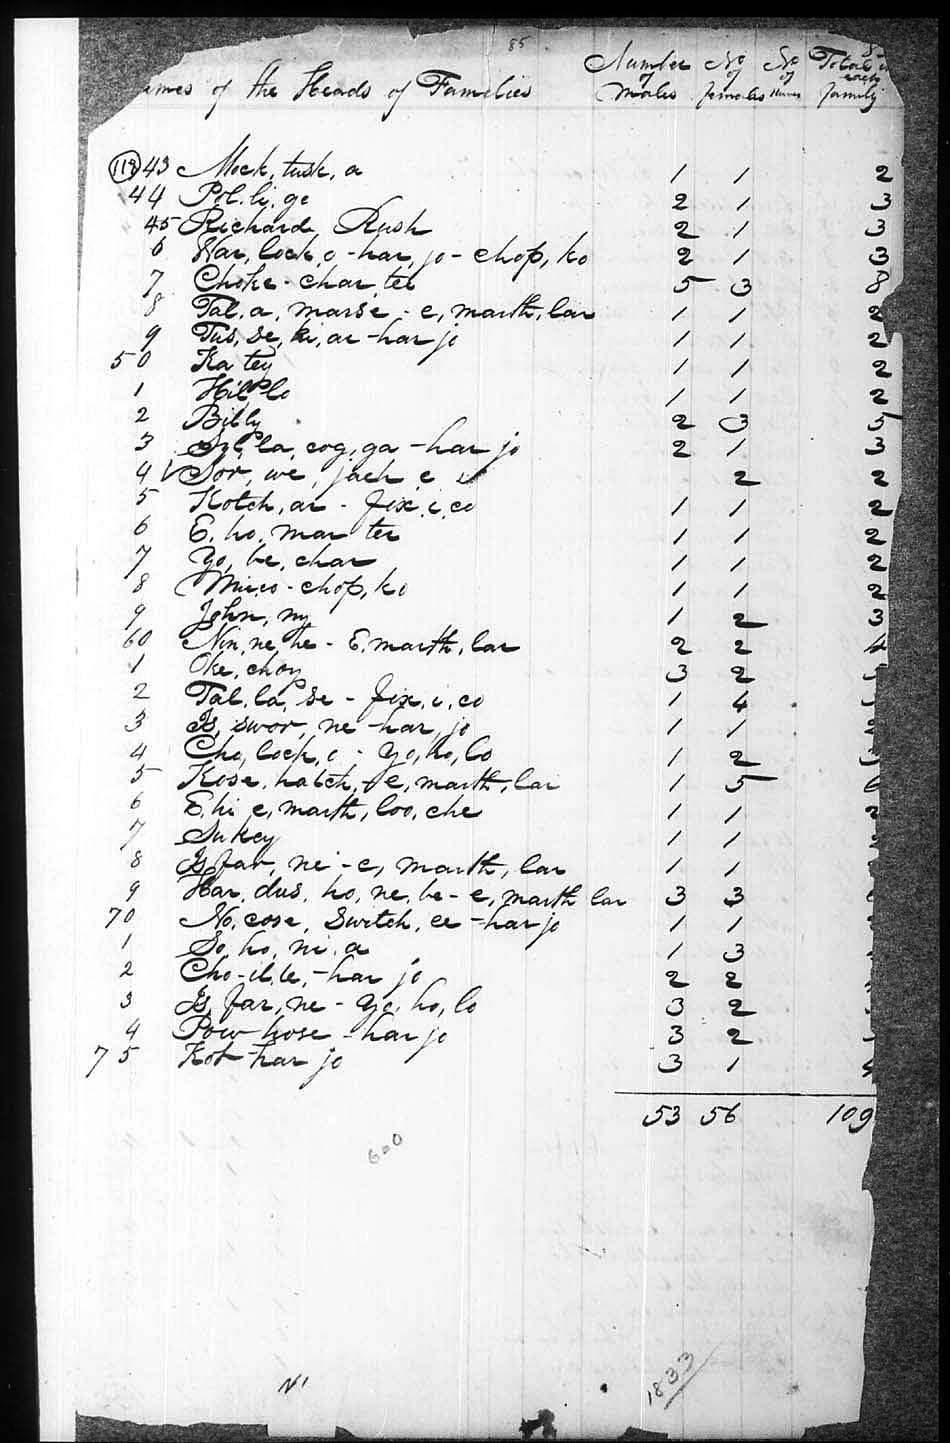 85
Number of Males No of females No of Slaves Total in each family
ames of the Heads of Families
118 43 Mock, tusk, a 1 1 2
44 Pol. li. ge 2 1 3
45 Richard Rush 2 1 3
6 War, lock, o - har, jo - chop, ko 2 1 3
7 Choke - char, tee 5 3 8
8 Tal, a, marse - e, marth, lar 1 1 2
9 Tus, se, ki, ar - har jo 1 1 2
50 Ka tey 1 1 2
1 Hil lo 1 1 2
2 Billy 2 3 5
3 Syl, la, cog, ga - har jo 2 1 3
4 Sor, we, jack e 2 2
5 Kotch, ar - fix, i, co 1 1 2
6 E, ho, mar ter 1 1 2
7 Yo, be, char 1 1 2
8 Mico - chop, ko 1 1 2
9 John, ny 1 2 3
60 Nin, ne, he - E, marth, lar 2 2 4
1 Oke, choy 3 2
2 Tal, la, se - fix, i, co 1 4
3 Is, swor, ne - har, jo 1 1
4 Cho, lock, o - Yo, ho, lo 1 2
5 Kose, hatch, e, marth, lar 1 5 6
6 E, hi e, marth, loo, che 1 1 2
7 Sukey 1 1
8 Is far, ne - e, marth, lar 1 1
9 Har, dus, ho, ne, be - e, marth lar 3 3
70 No, cose, Switch, ee - har jo 1 1
1 So, ho, ni, a 1 3
2 Cho - il, le, - har jo 2 2
3 Is, far, ne - Yo, ho, lo 3 2
4 Pow hose - har jo 3 2
75 Kot har jo 3 1 4
53 56 109
600
1833